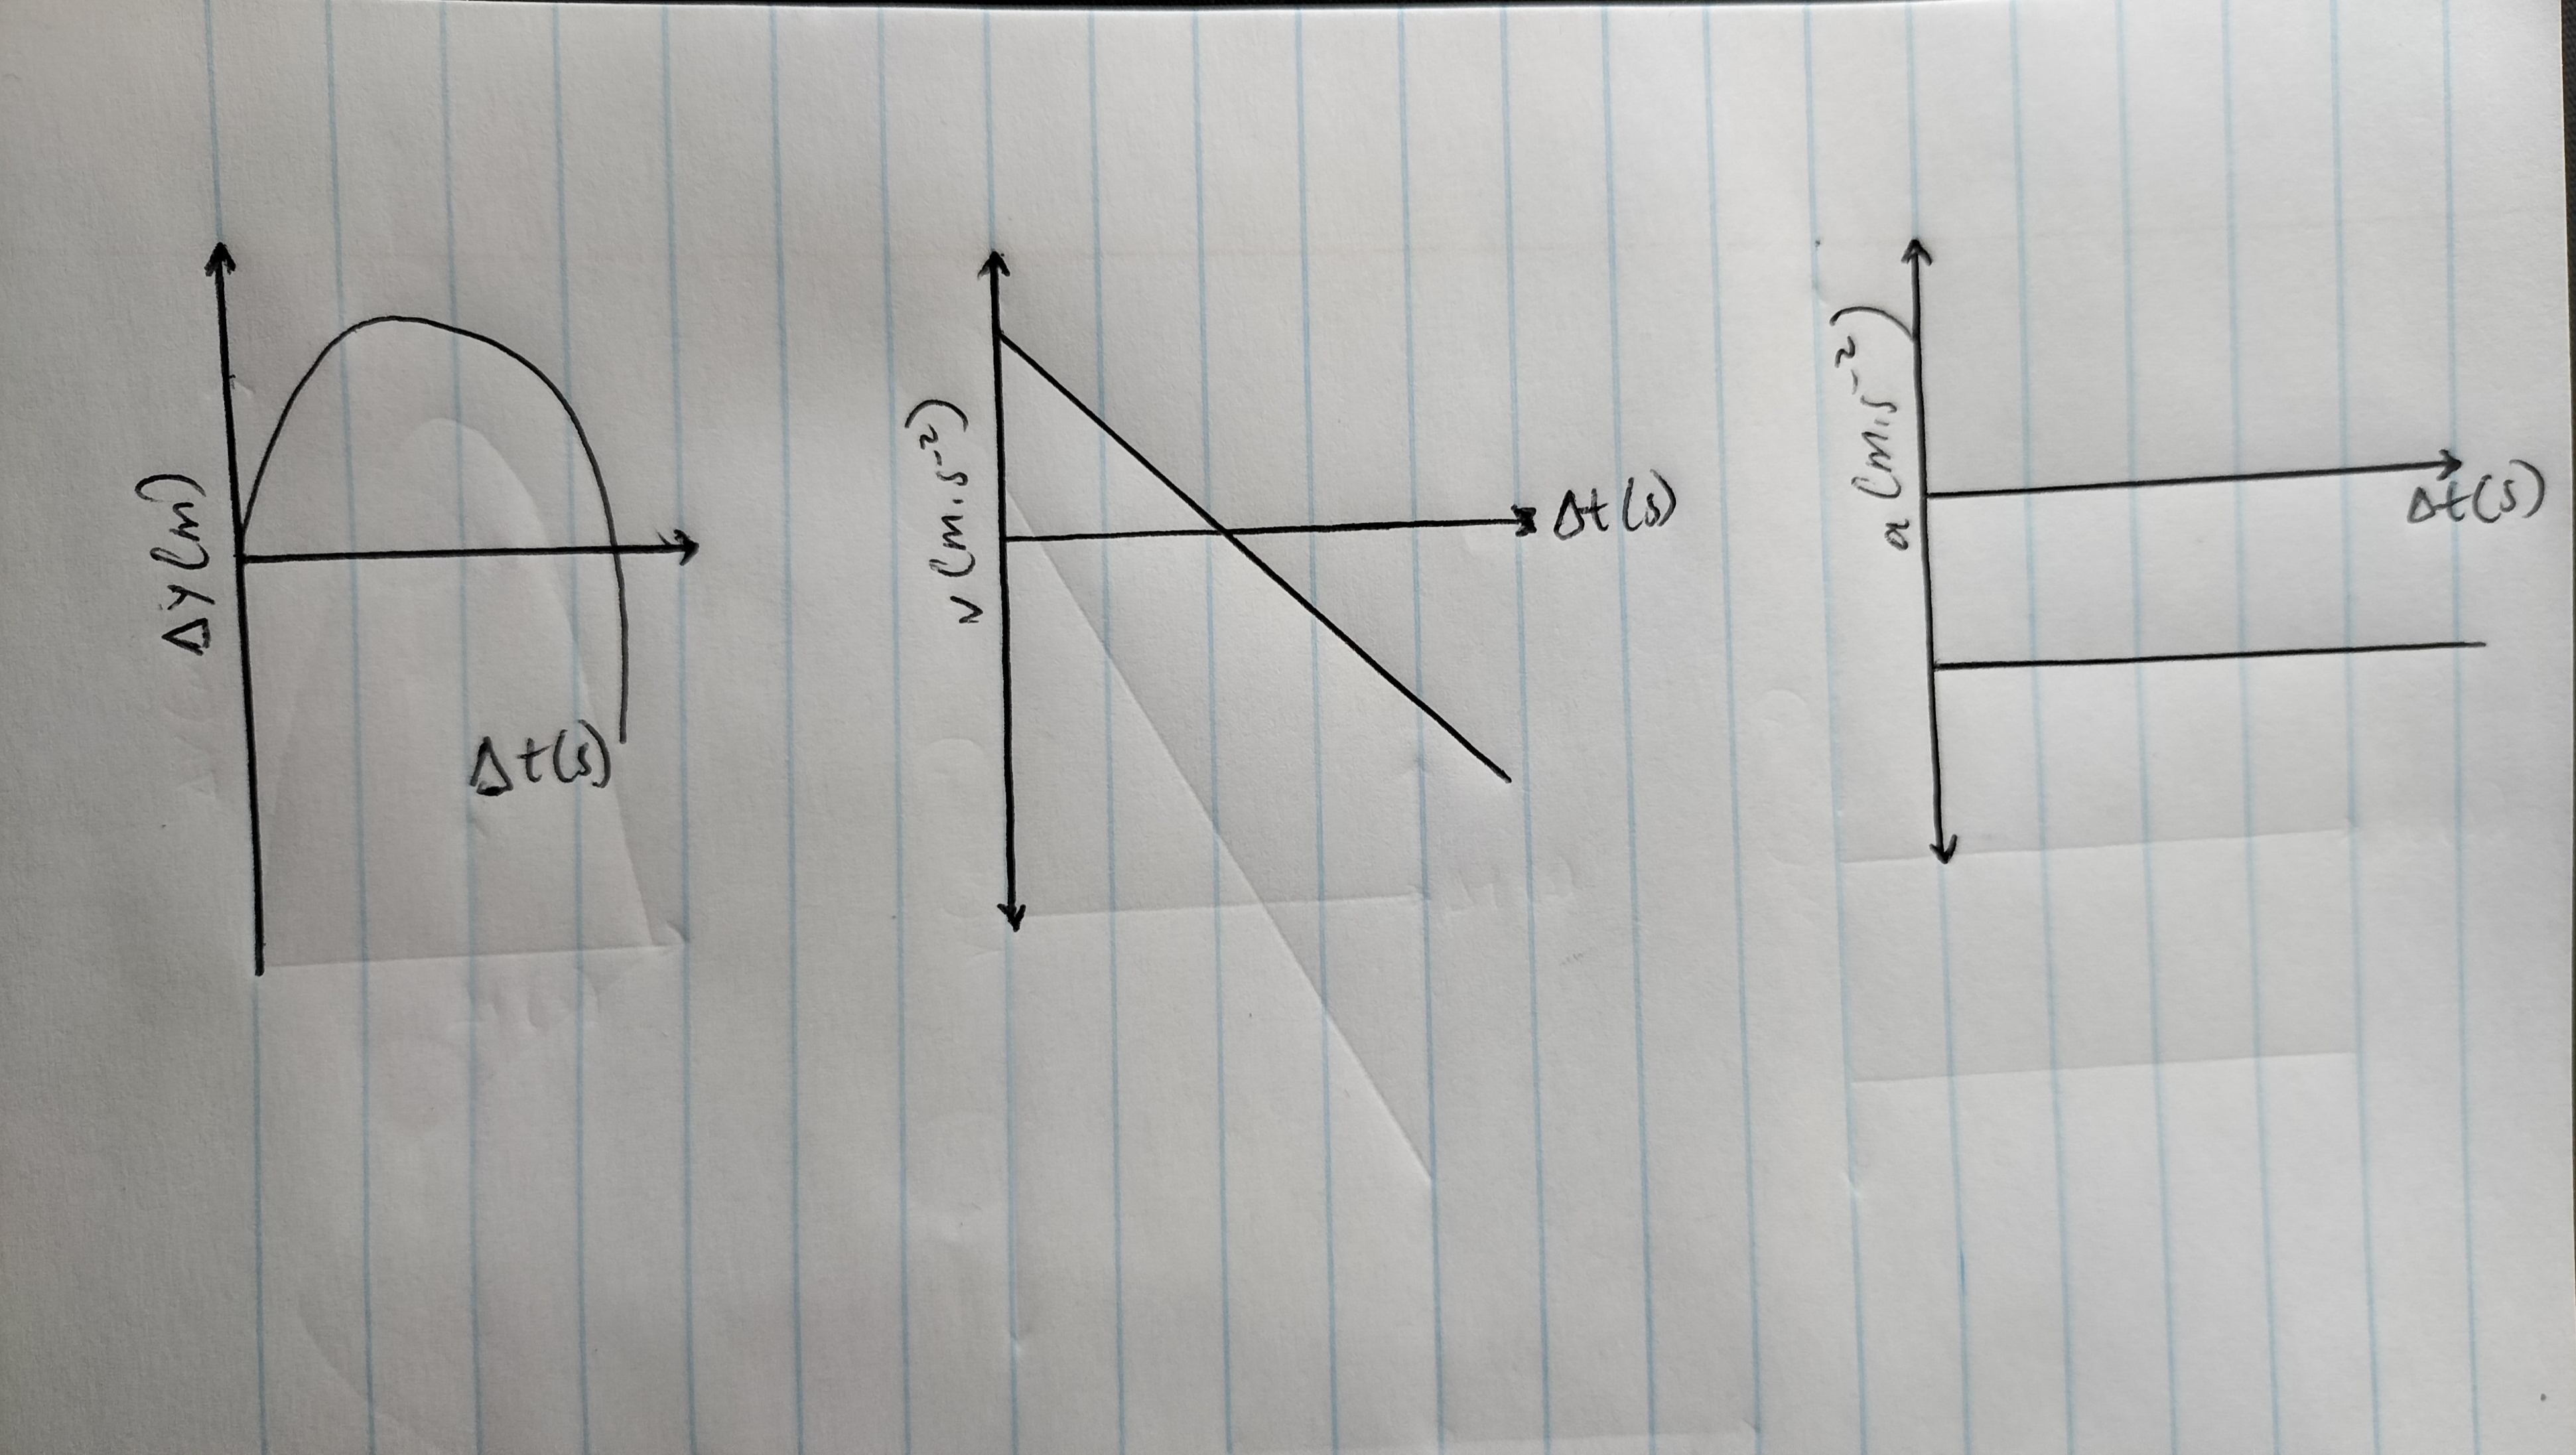 Δy (m)
Δt (s)
v (m.s⁻²)
Δt (s)
a (m.s⁻²)
Δt (s)